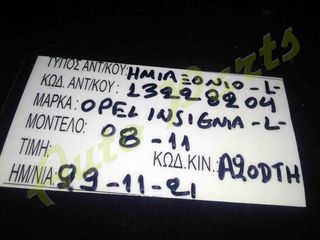 ΤΥΠΟΣ ΑΝΤ/ΚΟΥ: ΗΜΙΑΞΟΝΙΟ -L-
ΚΩΔ. ΑΝΤ/ΚΟΥ: 13228204
ΜΑΡΚΑ: OPEL INSIGNIA -L-
ΜΟΝΤΕΛΟ: 08-11
ΤΙΜΗ: ΚΩΔ.ΚΙΝ.: A20DTH
ΗΜ/ΝΙΑ: 29-11-21
Auto Parts